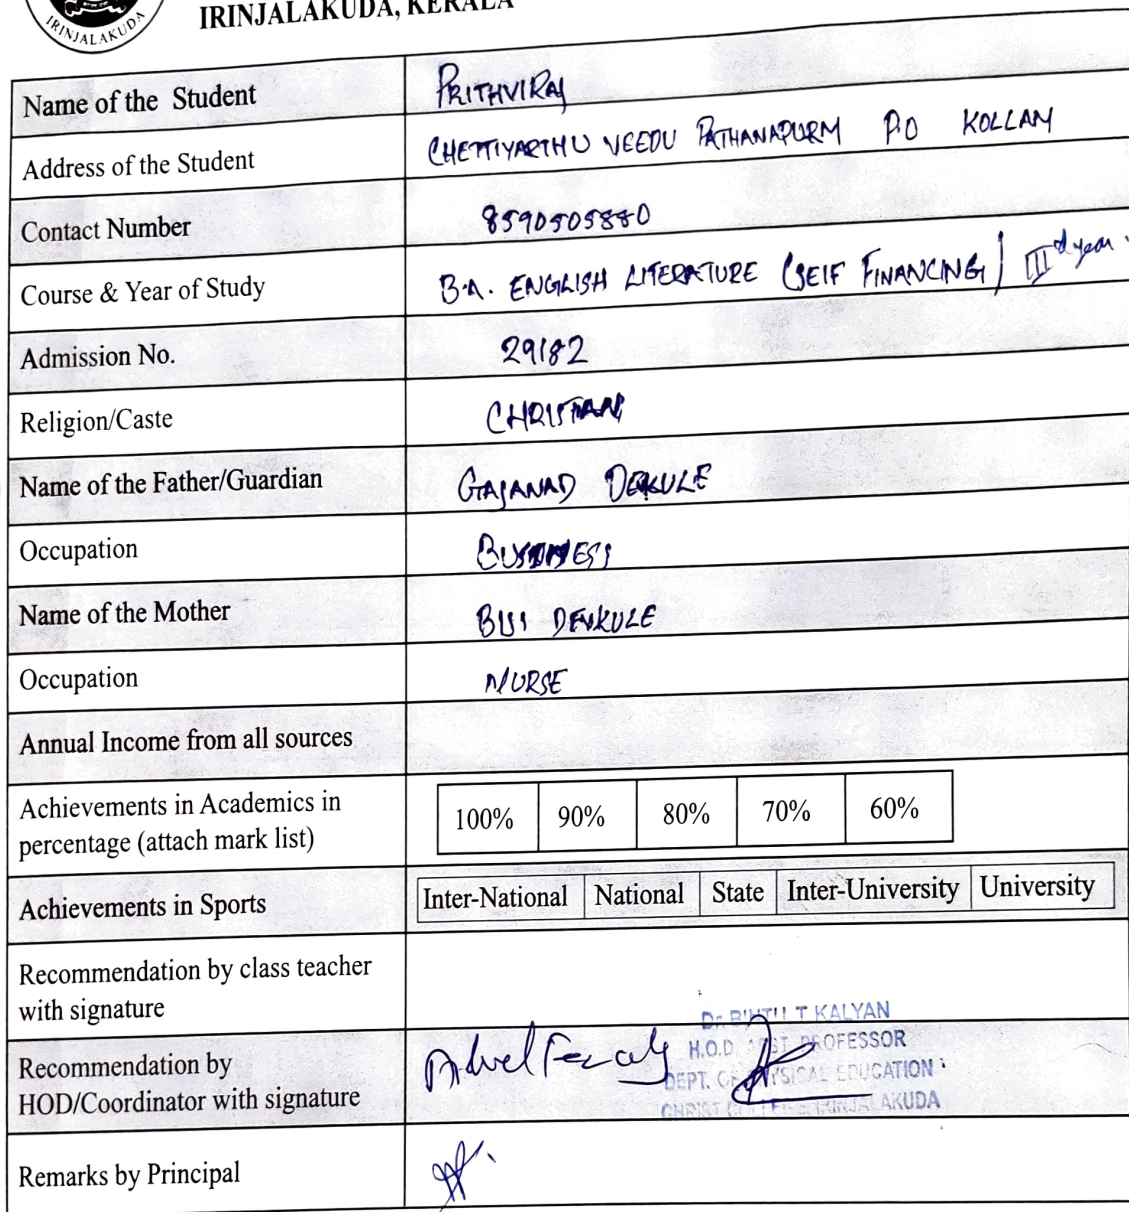 IRINJALAKUDA
IRINJALAKUDA, KERALA
Name of the Student PRITHVIRAJ
Address of the Student CHETTIYARTHU VEEDU PATHANAPURM P.O KOLLAM
Contact Number 8590505880
Course & Year of Study B.A. ENGLISH LITERATURE (SELF FINANCING) IIId year
Admission No. 29182
Religion/Caste CHRISTIAN
Name of the Father/Guardian GAJANAD DEKULE
Occupation BUSINESS
Name of the Mother BIJI DEVKULE
Occupation NURSE
Annual Income from all sources
Achievements in Academics in
percentage (attach mark list)
100% 90% 80% 70% 60%
Achievements in Sports Inter-National National State Inter-University University
Recommendation by class teacher
with signature
Dr. BINTU T KALYAN
H.O.D ASST. PROFESSOR
DEPT. OF PHYSICAL EDUCATION
CHRIST COLLEGE IRINJALAKUDA
Recommendation by
HOD/Coordinator with signature
Remarks by Principal